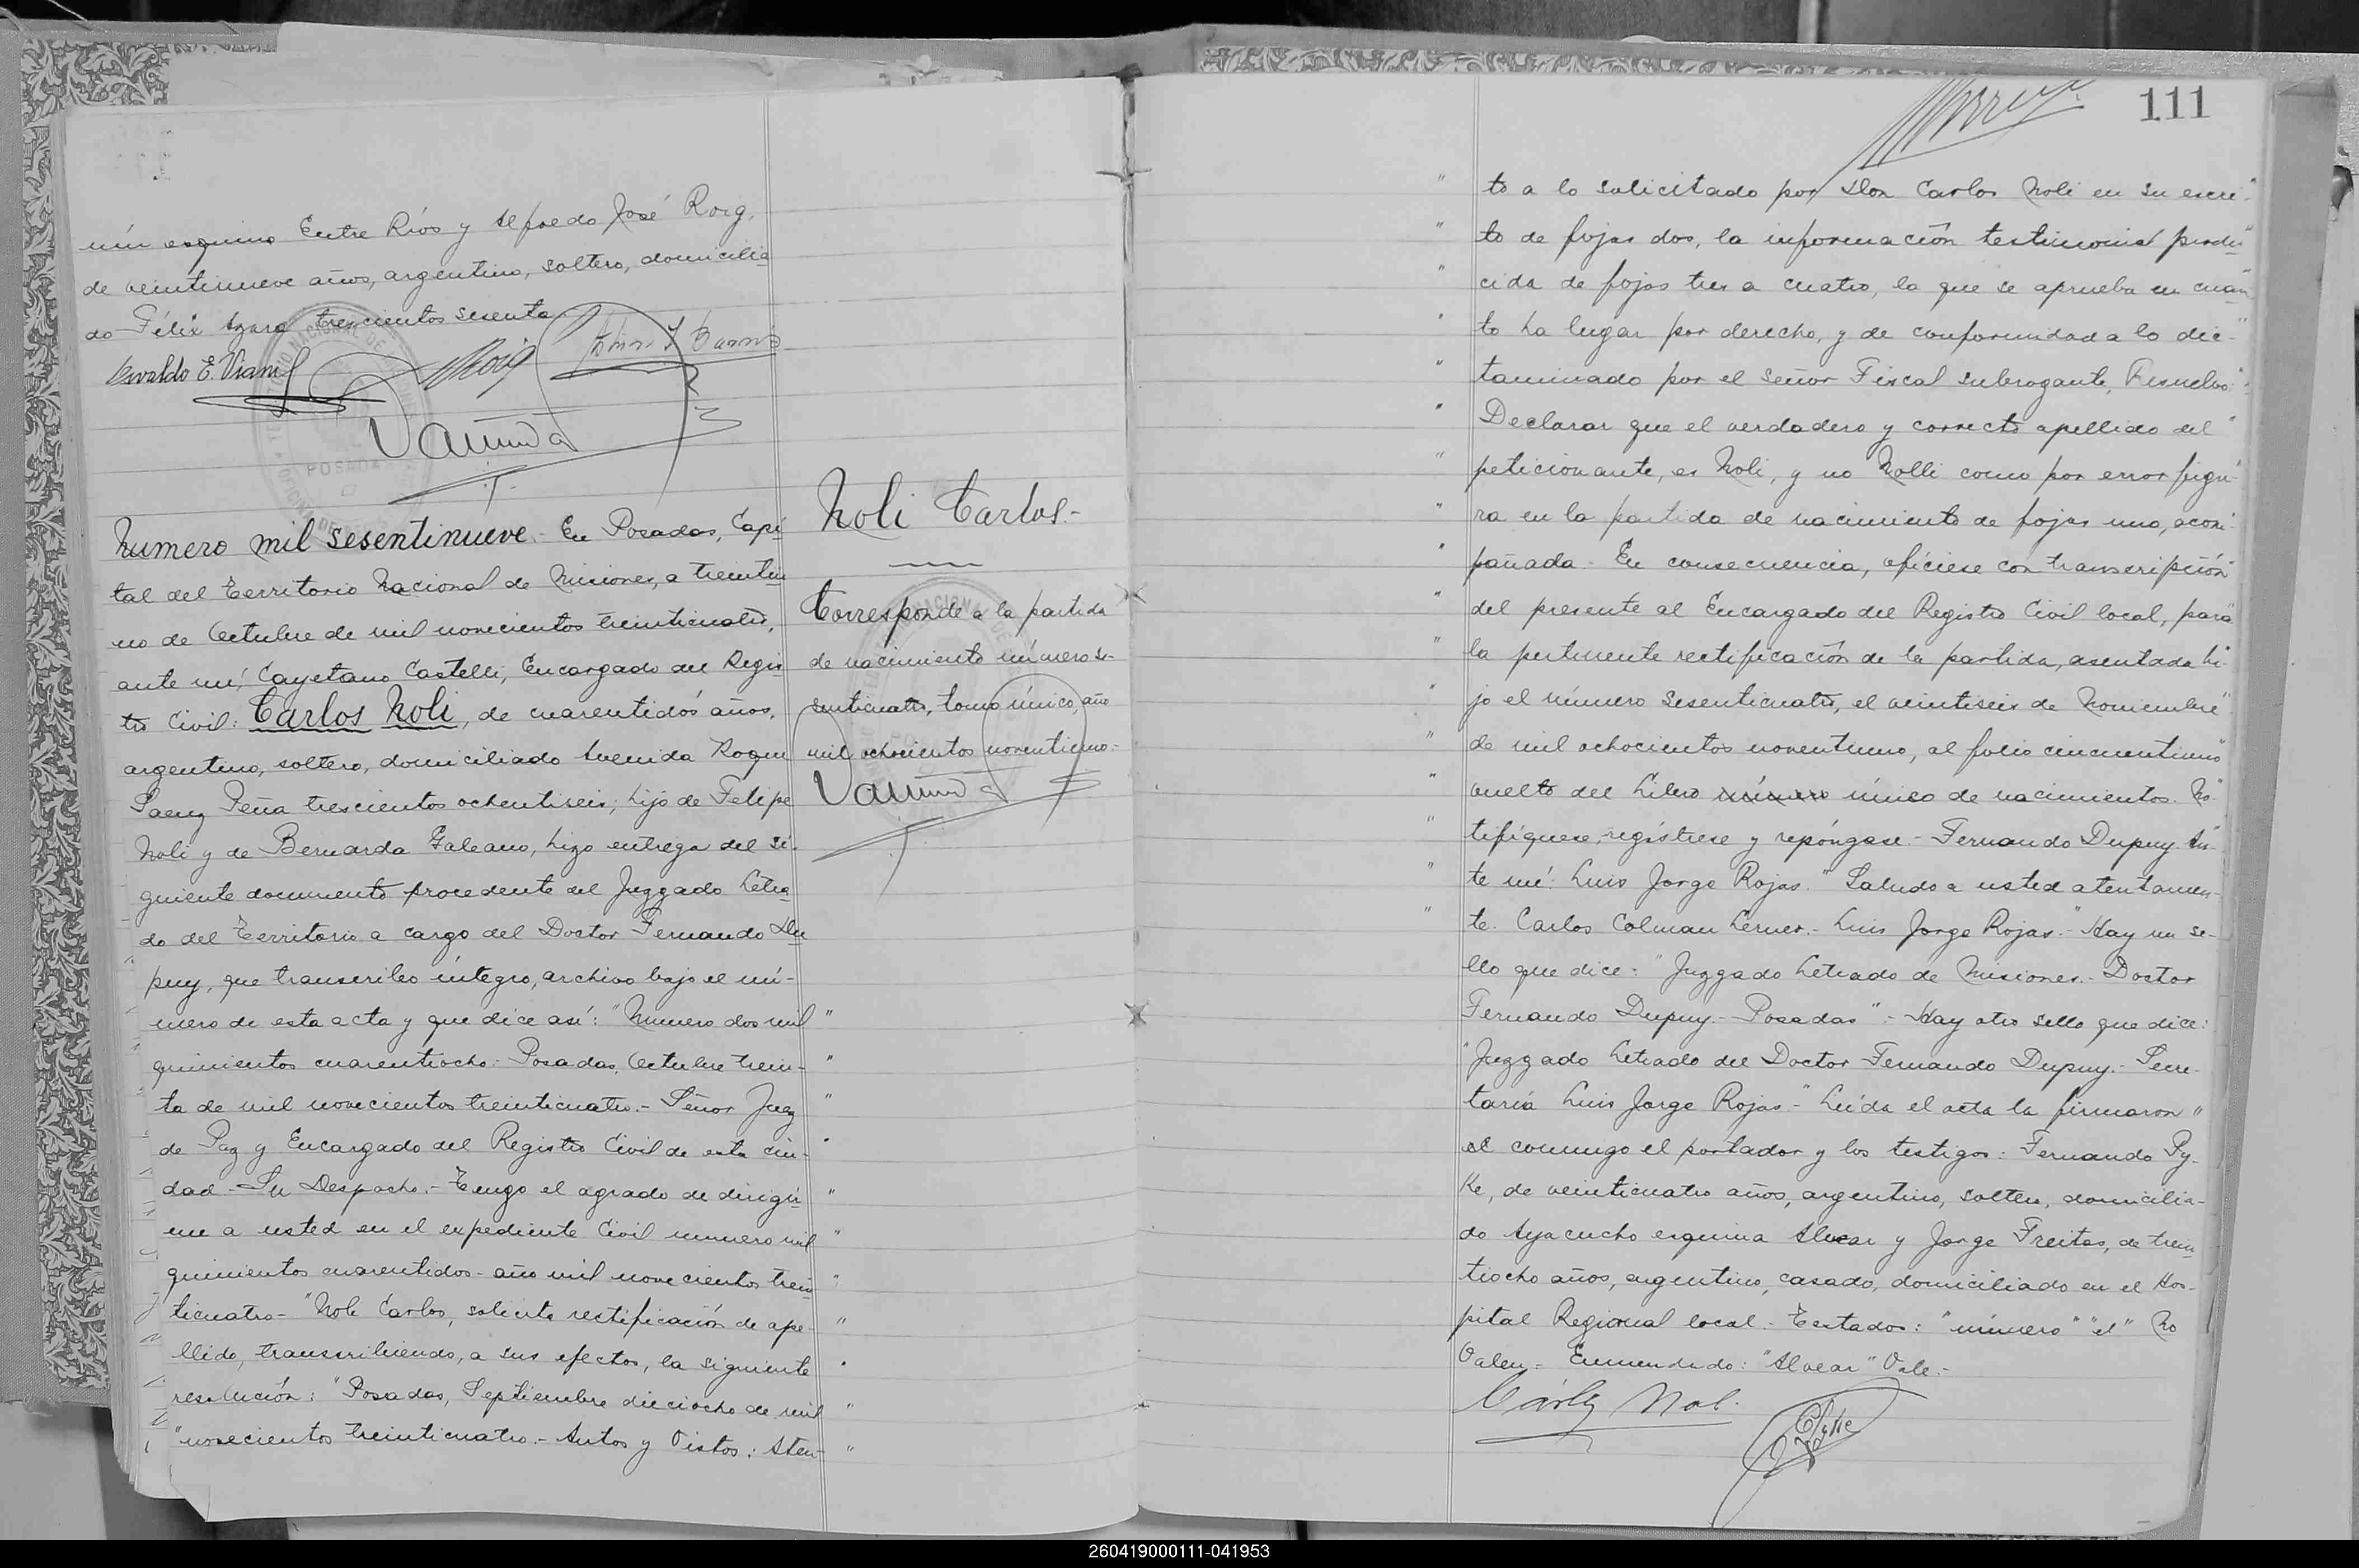 nín esquina Entre Ríos y Alfredo José Roig,
de veintinueve años, argentino, soltero, domicilia
do Félix Azara trescientos sesenta
Osvaldo E. Viani Roig
POSADAS
Numero mil sesentinueve.- En Posadas, Capi
tal del Territorio Nacional de Misiones, a treintiu
no de Octubre de mil novecientos treinticuatro,
ante mí, Cayetano Castelli, Encargado del Regis
tro Civil: Carlos Noli, de cuarentidós años,
argentino, soltero, domiciliado Avenida Roque
Saenz Peña trescientos ochentiseis; hijo de Felipe
Noli y de Bernarda Galeano, hizo entrega del si-
guiente documento procedente del Juzgado Letra
do del Territorio a cargo del Doctor Fernando Du
puy, que transcribo integro, archivo bajo el nú-
mero de esta acta y que dice así: "Numero dos mil "
quinientos cuarentiocho: Posadas, Octubre trein- "
ta de mil novecientos treinticuatro.- Señor Juez "
de Paz y Encargado del Registro Civil de esta ciu- "
dad - Su Despacho.- Tengo el agrado de dirigir "
me a usted en el expediente Civil numero mil "
quinientos cuarentidos - año mil novecientos trein "
ticuatro - "Noli Carlos, solicita rectificación de ape- "
llido, transcribiendo, a sus efectos, la siguiente "
resolución: "Posadas, Septiembre dieciocho de mil "
"novecientos treinticuatro.- Autos y Vistos: Aten- "
Noli Carlos.-
Corresponde a la partida
de nacimiento número se-
senticuatro, tomo único, año
mil ochocientos noventiuno.-
111
" to a lo solicitado por Don Carlos Noli en su escri- "
" to de fojas dos, la información testimonial produ "
" cida de fojas tres a cuatro, la que se aprueba en cuan "
" to ha lugar por derecho, y de conformidad a lo dic- "
" taminado por el Señor Fiscal subrogante, Resuelvo: "
" Declarar que el verdadero y correcto apellido del "
" peticionante, es Noli, y no Nolli como por error figu- "
" ra en la partida de nacimiento de fojas uno, acom- "
" pañada.- En consecuencia, ofíciese con transcripción "
" del presente al Encargado del Registro Civil local, para "
" la pertinente rectificación de la partida, asentada ba- "
" jo el número sesenticuatro, el veintiseis de Noviembre "
" de mil ochocientos noventiuno, al folio cincuentiuno "
" vuelto del Libro número único de nacimientos. No- "
" tifíquese, regístrese y repóngase.- Fernando Dupuy. An- "
" te mí: Luis Jorge Rojas." Saludo a usted atentamen-
" te. Carlos Colman Lerner.- Luis Jorge Rojas.-" Hay un se-
llo que dice: "Juzgado Letrado de Misiones.- Doctor
Fernando Dupuy.- Posadas".- Hay otro sello que dice:
"Juzgado Letrado del Doctor Fernando Dupuy.- Secre-
taría Luis Jorge Rojas.-" Leída el acta la firmaron "
el conmigo el portador y los testigos: Fernando Py-
ke, de veinticuatro años, argentino, soltero, domicilia-
do Ayacucho esquina Alvear y Jorge Freitas, de trein
tiocho años, argentino, casado, domiciliado en el Hos-
pital Regional local.- Testados: "número" "el" No
Valen - Enmendado: "Alvear" Vale.-
Carlos Noli
260419000111-041953